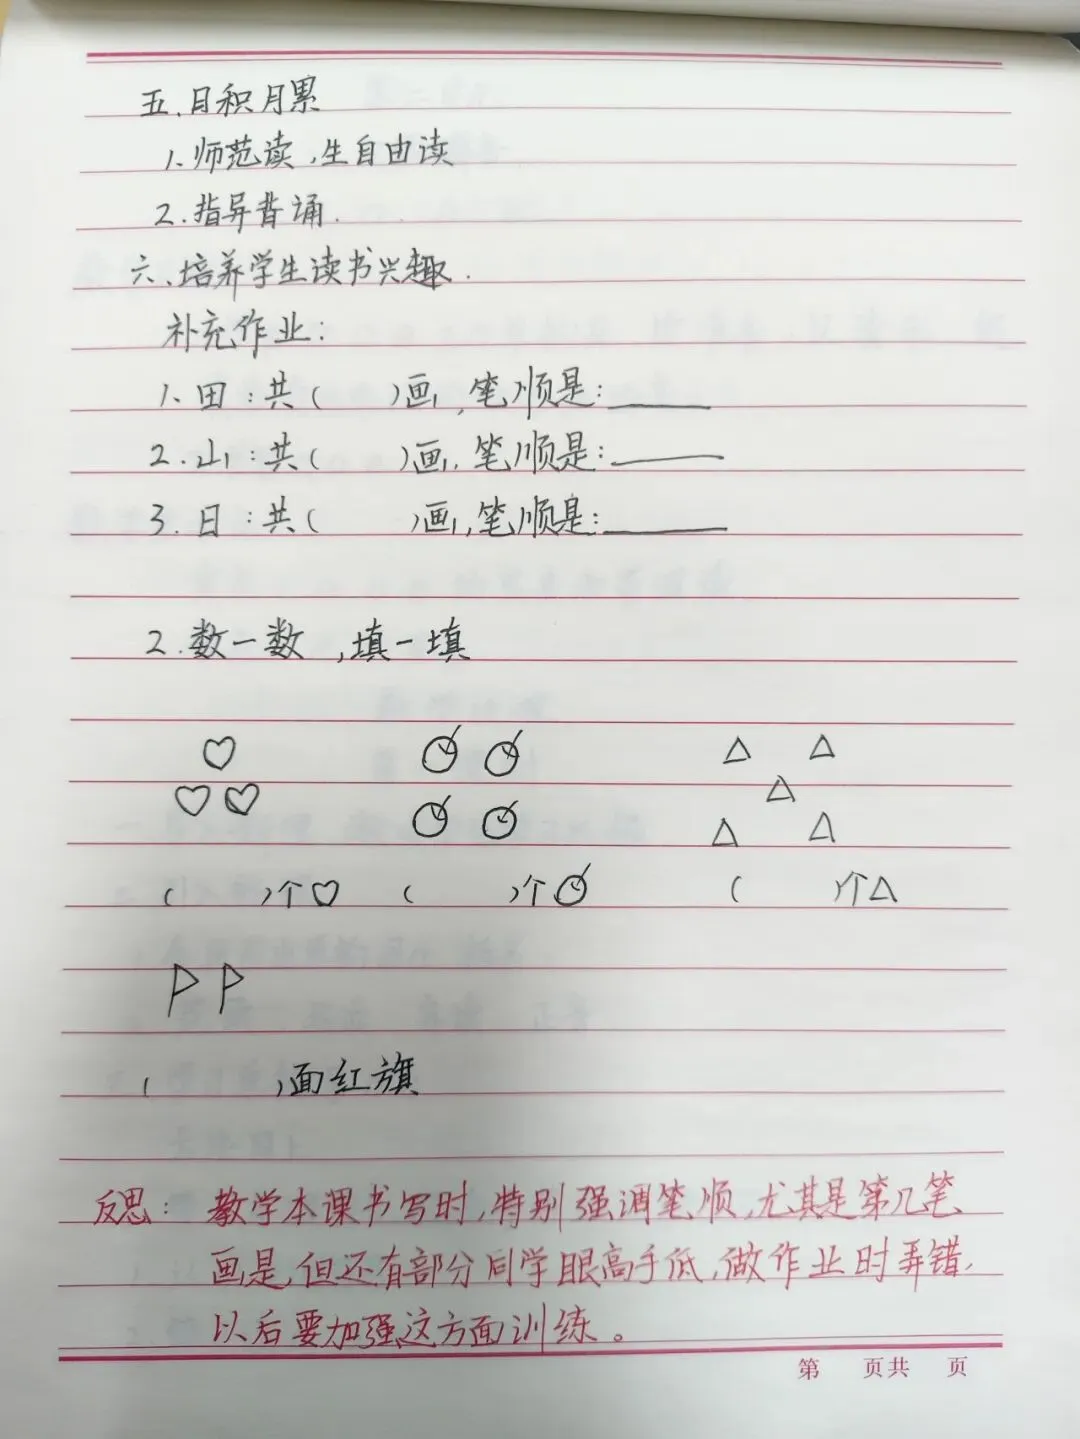 五、日积月累
1、师范读,生自由读
2.指导背诵.
六、培养学生读书兴趣.
补充作业:
1、田:共( )画,笔顺是:______
2.山:共( )画,笔顺是:______
3.日:共( )画,笔顺是:______
2.数一数,填一填
( )个♡ ( )个 ( )个△
( )面红旗
反思:教学本课书写时,特别强调笔顺,尤其是第几笔
画是,但还有部分同学眼高手低,做作业时弄错,
以后要加强这方面训练。
第 页共 页